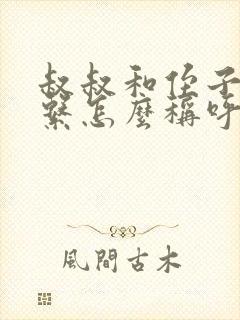 叔叔和侄子
繫怎麼稱呼
風間古木